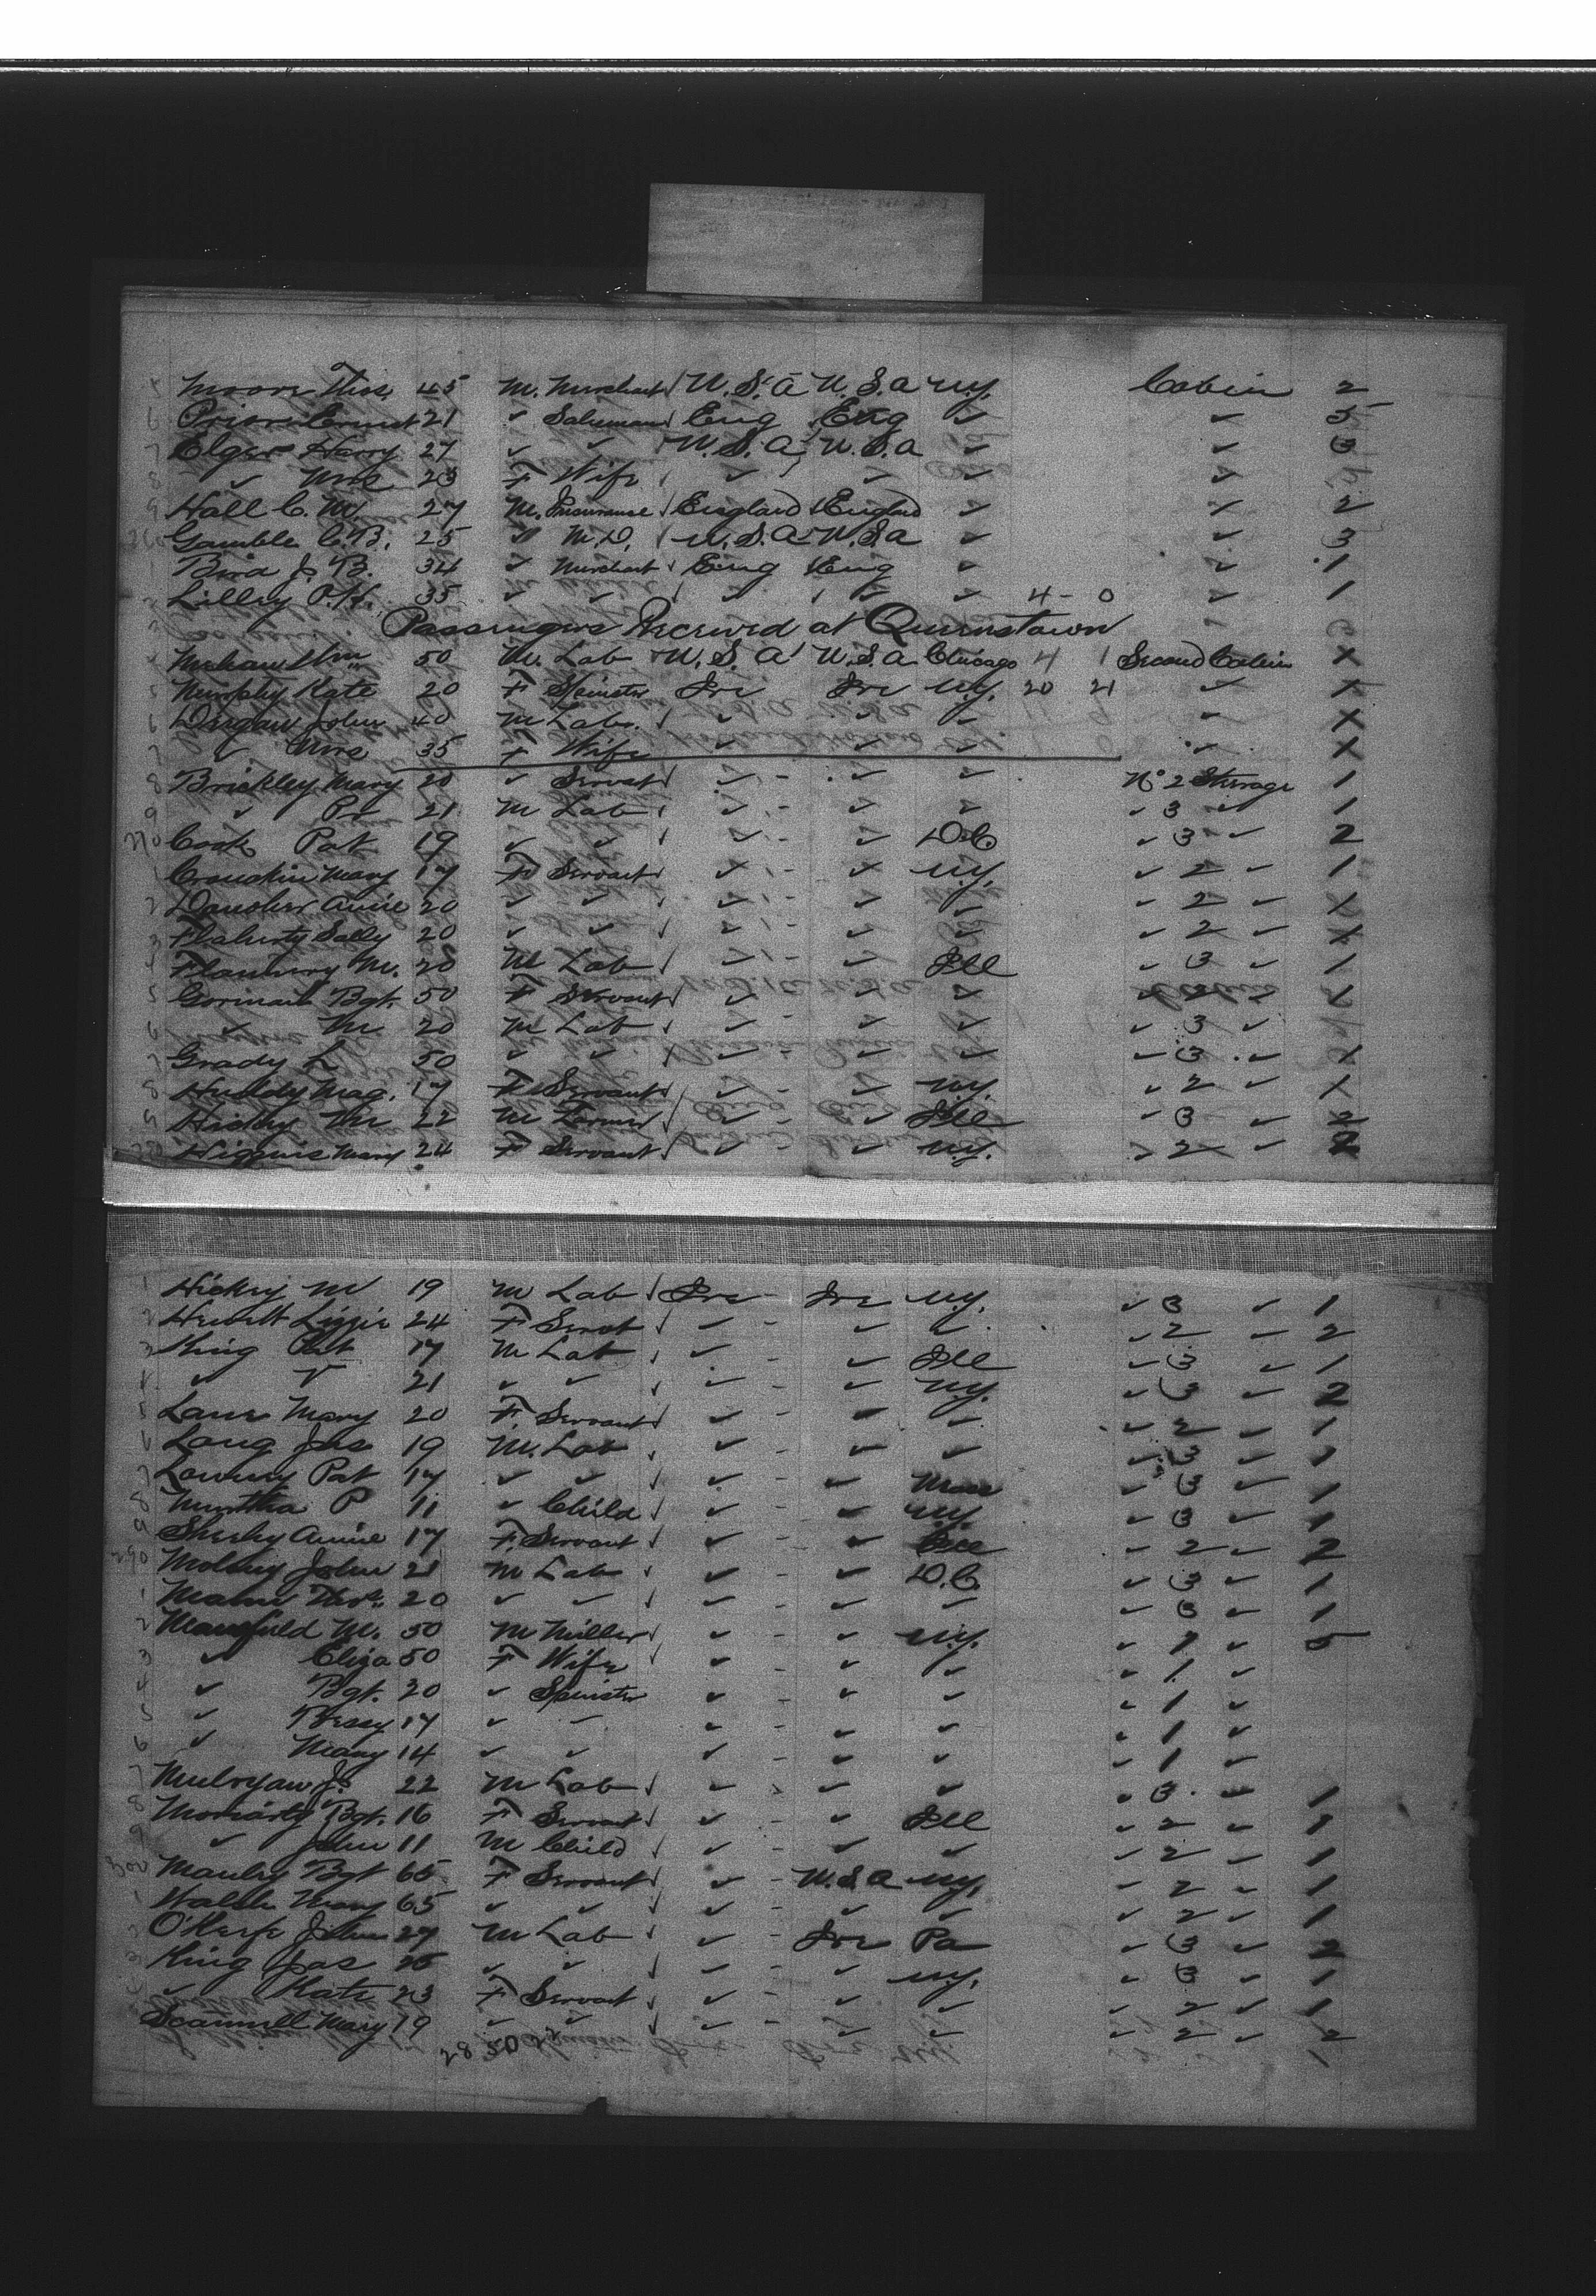 5 Moore Thos. 45 M. Merchant U.S.A U.S.A N.Y. Cabin 2
6 Prior Ernest 21 ✓ Salesman Eng Eng ✓ ✓ 5
7 Elger Harry 27 ✓ ✓ U.S.A U.S.A ✓ ✓ 3
8 ✓ Mrs 23 F Wife ✓ ✓ ✓ ✓
9 Hall C. M 27 M. Insurance England England ✓ ✓ 2
Gamble C. B. 25 ✓ M.D. U.S.A U.S.A ✓ ✓ 3
1 Bird J. B. 34 ✓ Merchant Eng Eng ✓ ✓ 1
Lilley P. H. 35 ✓ ✓ ✓ ✓ ✓ 4 - 0 ✓ 1
Passengers Received at Queenstown
50 M. Lab U.S.A U.S.A Chicago 4 1 Second Cabin X
5 Murphy Kate 20 F Spinster Ire Ire N.Y. 20 21 ✓ X
6 Durgan John 40 M Lab. ✓ ✓ ✓ ✓ X
7 ✓ Mrs 35 F Wife ✓ ✓ ✓ ✓ X
8 Brickley Mary 20 ✓ Servant ✓ - ✓ ✓ No 2 Steerage 1
9 ✓ Pr 21 M Lab ✓ - ✓ ✓ ✓ 3 ✓ 1
270 Cook Pat 19 ✓ ✓ ✓ - ✓ D.C. ✓ 3 ✓ 2
1 Mary 17 F Servant ✓ - ✓ N.Y. ✓ 2 ✓ 1
2 Annie 20 ✓ ✓ ✓ - ✓ ✓ ✓ 2 ✓ X
3 Flaherty Sally 20 ✓ ✓ ✓ - ✓ ✓ ✓ 2 ✓ X
4 Flannery M. 20 M Lab ✓ - ✓ Ill ✓ 3 ✓ 1
5 Gorman Bgt. 50 F Servant ✓ ✓ ✓ ✓ 2 ✓ X
6 ✓ M 20 M Lab ✓ - ✓ ✓ ✓ 3 ✓
7 Grady L 50 ✓ ✓ ✓ - ✓ ✓ ✓ 3 ✓ X
8 Huddy Mag. 17 F Servant ✓ - ✓ N.Y. ✓ 2 ✓ X
9 Hickey M 22 M Farmer ✓ - ✓ Ill ✓ 3 ✓ 2
Higgins Mary 24 F Servant ✓ - ✓ N.Y. ✓ 2 ✓ 2
1 Hickey M 19 M Lab Ire - Ire N.Y. ✓ 3 ✓ 1
2 Hewitt Lizzie 24 F Servt ✓ - ✓ ✓ ✓ 2 ✓ 2
3 King Pat 17 M Lab ✓ - ✓ Ill ✓ 3 ✓ 1
4 ✓ 21 ✓ ✓ ✓ - ✓ N.Y. ✓ 3 ✓ 2
5 Lane Mary 20 F. Servant ✓ - ✓ ✓ ✓ 2 ✓ 1
6 Lang Jas 19 M. Lab ✓ ✓ ✓ ✓ 3 ✓ 1
7 Lowney Pat 17 ✓ ✓ ✓ - ✓ Mass ✓ 3 ✓ 1
8 Murtha P 11 ✓ Child ✓ - ✓ N.Y. ✓ 3 ✓ 1
9 Sheehy Annie 17 F. Servant ✓ - ✓ Ill ✓ 2 ✓ 2
290 Molony John 21 M Lab ✓ - ✓ D.C. ✓ 3 ✓ 1
1 Thos. 20 ✓ ✓ ✓ - ✓ ✓ ✓ 3 ✓ 1
2 Mansfield M. 50 M Miller ✓ - ✓ N.Y. ✓ 1 ✓ 5
3 ✓ Eliza 50 F Wife ✓ - ✓ ✓ ✓ 1 ✓
4 ✓ Bgt. 20 ✓ Spinster ✓ - ✓ ✓ ✓ 1 ✓
5 ✓ Bessy 17 ✓ ✓ ✓ - ✓ ✓ ✓ 1 ✓
6 ✓ Mary 14 ✓ ✓ ✓ - ✓ ✓ ✓ 1 ✓
7 Mulryan J. 22 M Lab ✓ - ✓ ✓ ✓ 3 ✓ 1
8 Moriarty Bgt. 16 F Servant ✓ - ✓ Ill ✓ 2 ✓ 1
9 ✓ John 11 M Child ✓ - ✓ ✓ ✓ 2 ✓ 1
300 Manley Bgt 65 F Servant ✓ - U.S.A N.Y. ✓ 2 ✓ 1
1 Walsh Mary 65 ✓ ✓ ✓ - ✓ ✓ ✓ 2 ✓ 1
O'Keefe John 27 M Lab ✓ - Ire Pa ✓ 3 ✓ 2
3 King Jas 25 ✓ ✓ ✓ - ✓ N.Y. ✓ 3 ✓ 1
✓ Kate 23 F Servant ✓ - ✓ ✓ ✓ 2 ✓ 1
Scannell Mary 19 ✓ ✓ ✓ - ✓ ✓ ✓ 2 ✓ 2
28 50